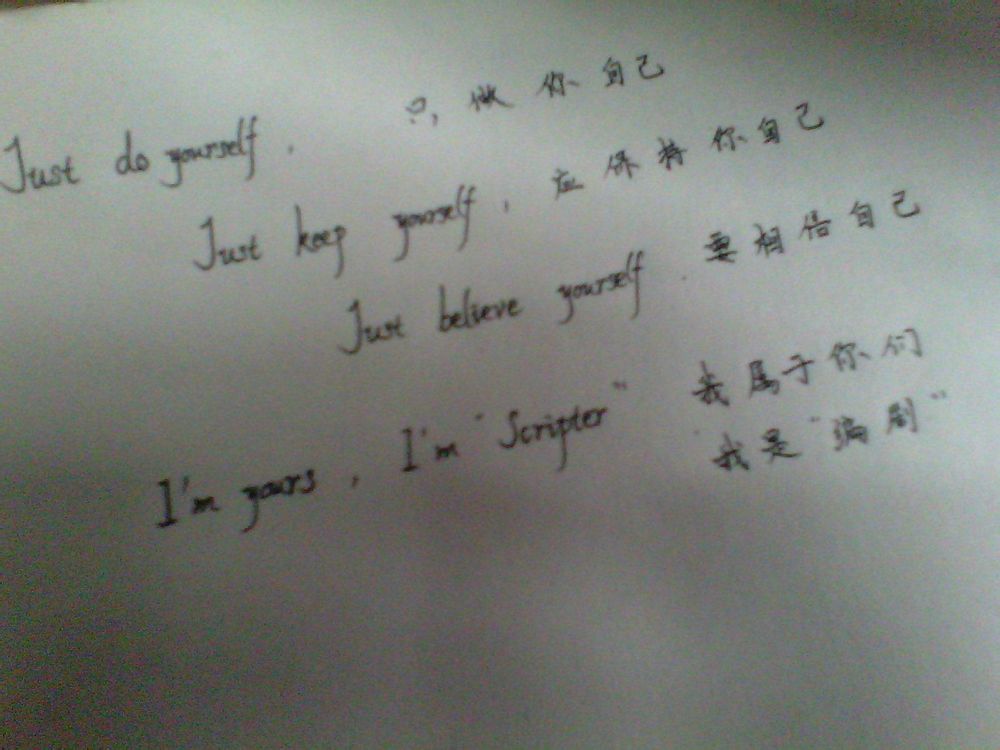 Just do yourself. 只, 做你自己
Just keep yourself, 应保持你自己
Just believe yourself. 要相信自己
I'm yours, I'm "Scripter" 我属于你们
我是"编剧"